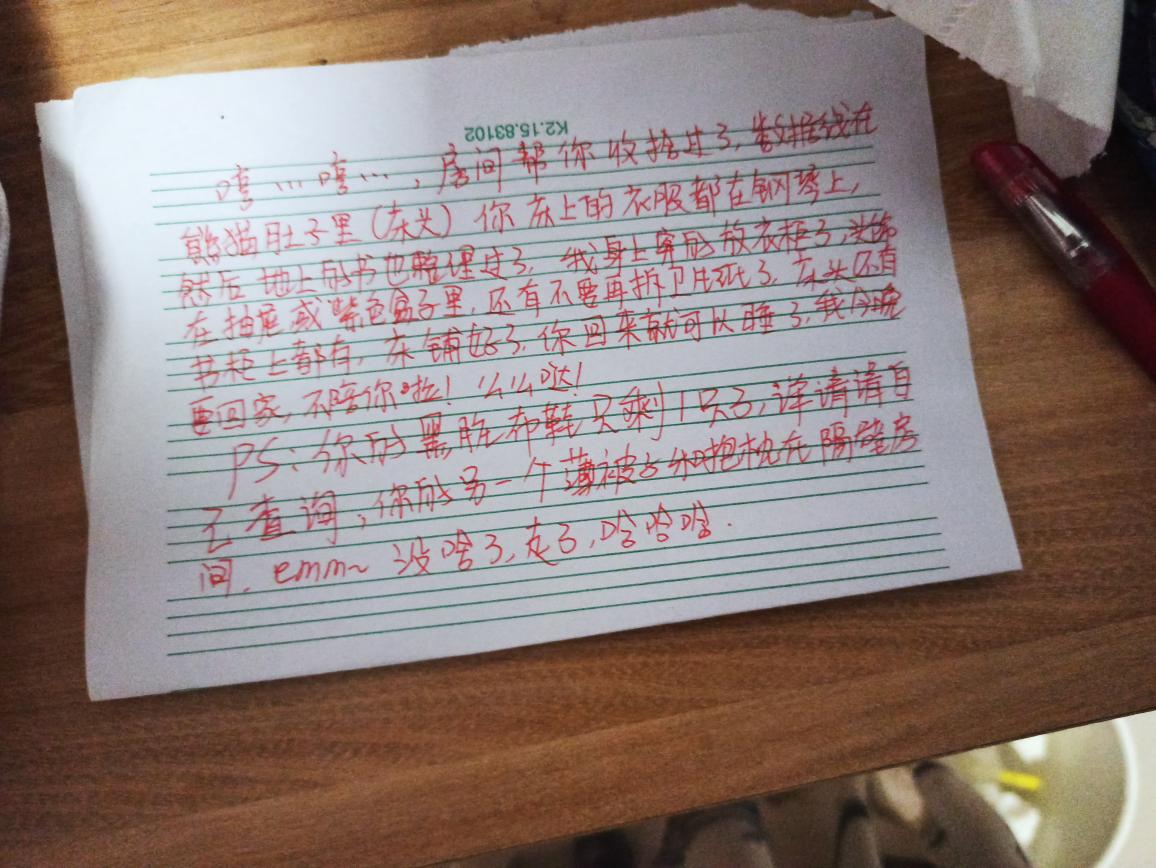 K2.15.83102
嘻…嘻…，房间帮你收拾过了，数据线在
熊猫肚子里（床头）你床上的衣服都在钢琴上，
然后地上的书也整理过了，我身上穿的放衣柜了，
在抽屉或紫色盒子里，还有不要再拆卫生纸了，床头还有
书柜上都有，床铺好了，你回来就可以睡了，我今晚
要回家，不陪你啦！么么哒！
PS：你的黑色布鞋只剩1只了，详请请自
己查询，你的另一个薄被子和抱枕在隔壁房
间，emm~没啥了，走了，哈哈哈．